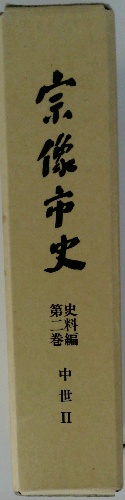 宗像市史
史料編
第二巻
中世II